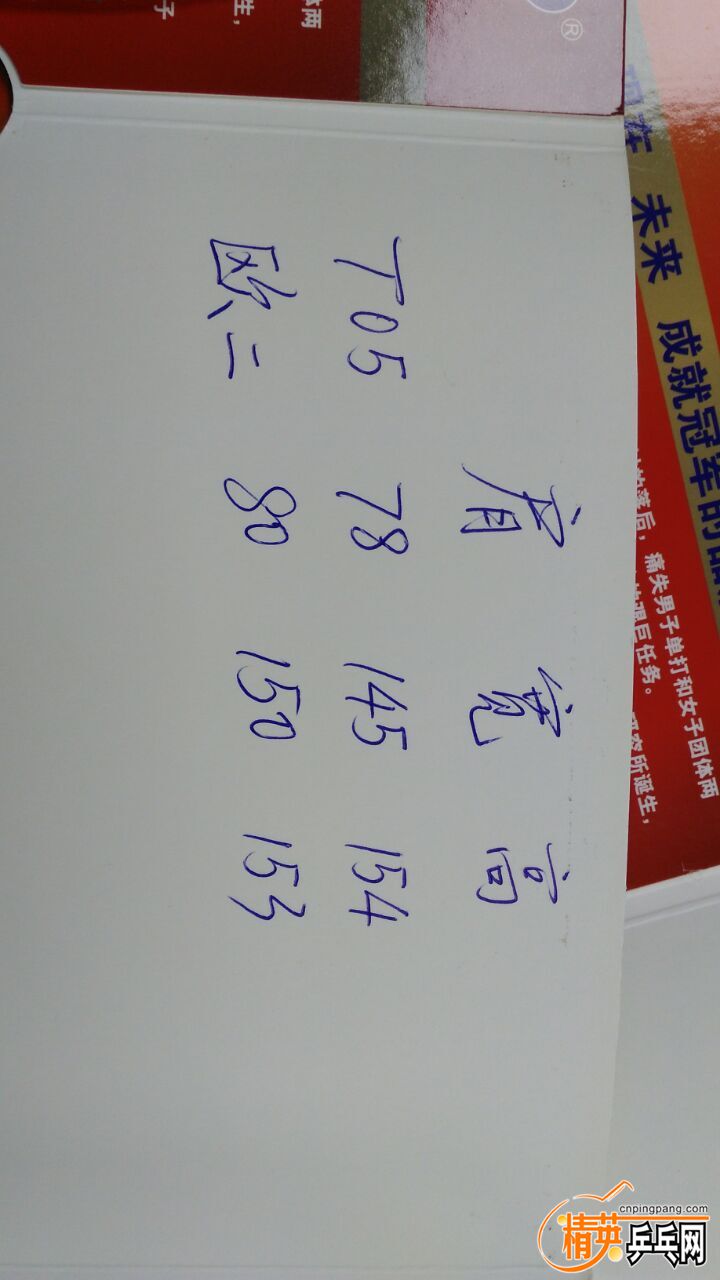 肩 宽 高
T05 78 145 154
欧二 80 150 153
体两
生，
子
®
在 未来 成就冠军的品
的落后，痛失男子单打和女子团体两
艰巨任务。
研究所诞生，
cnpingpang.com
精英乒乓网